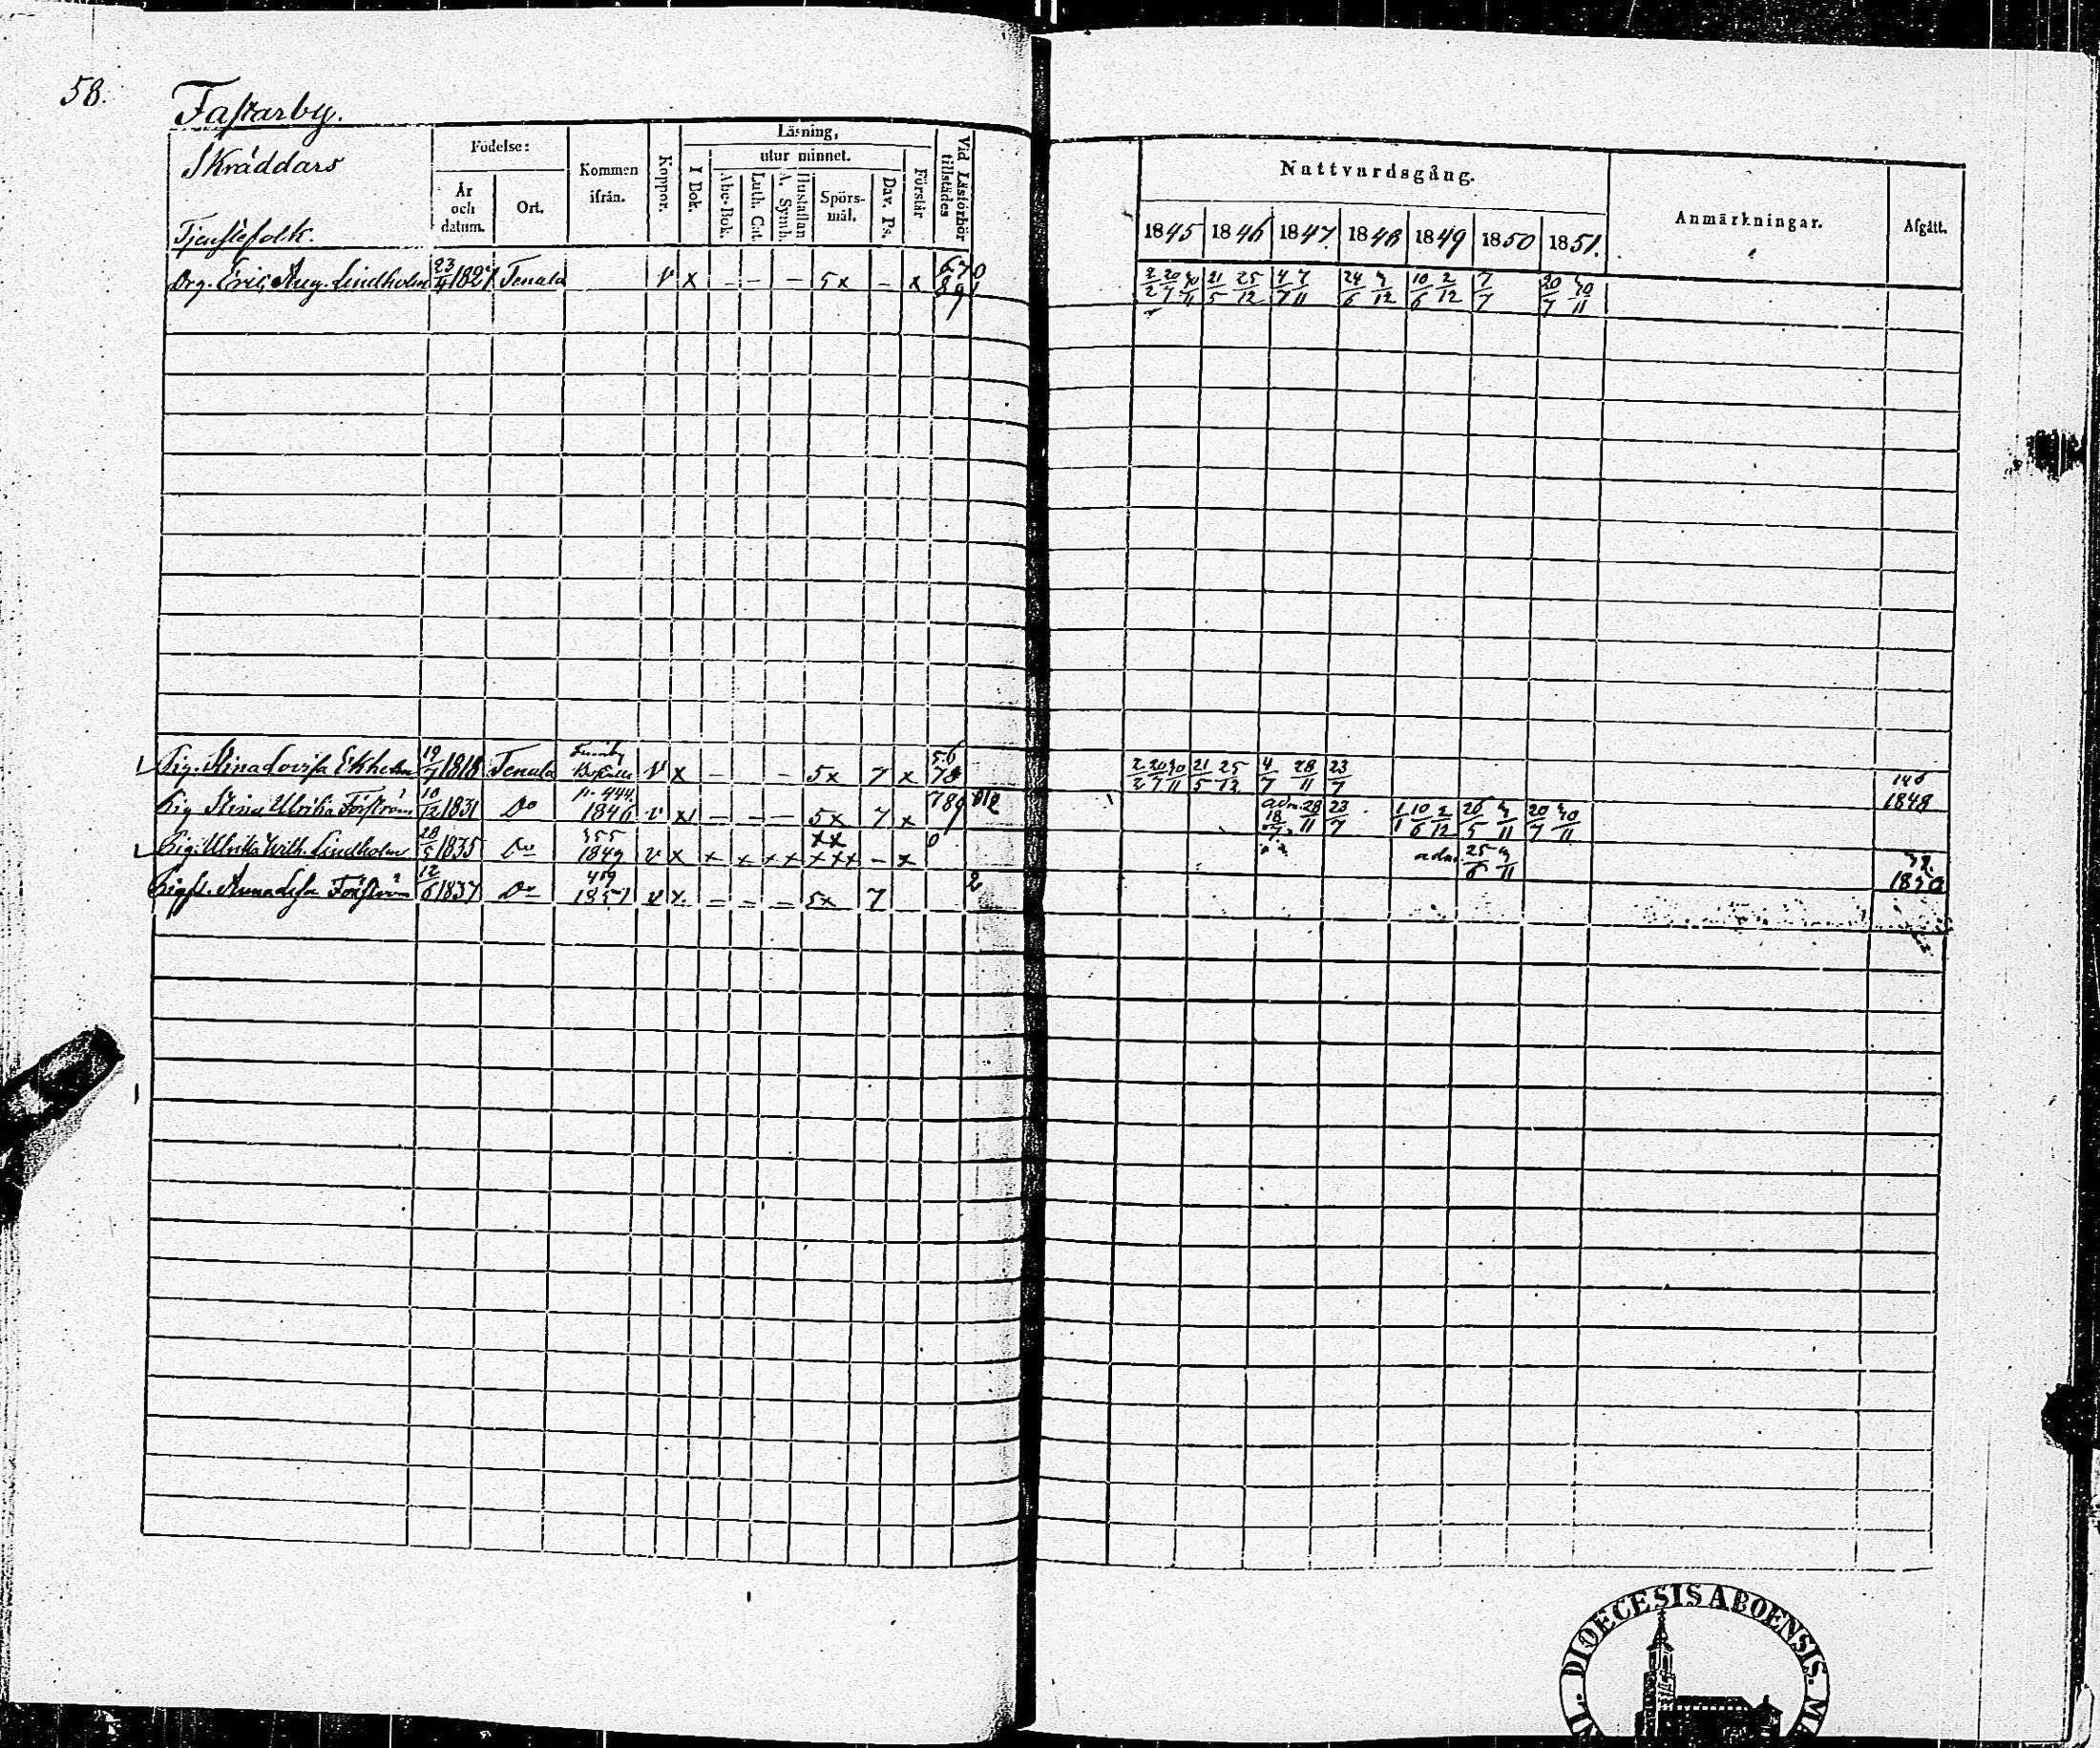 58.
Fastarby.
Skräddars
Tjenstefolk.
Födelse:
År och datum.
Ort.
Kommen ifrån.
Koppor.
Läsning,
I Bok.
utur minnet.
Abc-Bok.
Luth. Cat.
A. Symb.
Hustaflan
Spörsmål.
Dav. Ps.
Förstår
Vid Läsförhör tillstädes
Nattvardsgång.
1845 1846 1847 1848 1849 1850 1851.
Anmärkningar.
Afgått.
Drg. Eric Aug. Lindholm 23/4 1827 Tenala v x - - - 5x - x 6 7 0 8 9 1 2/2 20/7 30/11 21/5 25/12 4/7 7/11 24/6 3/12 10/6 2/12 7/7 20/7 30/11
Pig. Stina Lovisa Ekholm 19/7 1818 Tenala v x - - 5x 7 x 5.6 78 2/2 20/7 30/11 21/5 25/12 4/7 28/11 23/7 146 1848
Pig Stina Ulrika Förström 10/12 1831 Do p. 444. 1846 v x - - - 5x 7 x 789 012 adm. 18/7 28/11 23/7 1/1 10/6 2/12 26/5 3/11 20/7 30/11
Pig. Ulrika Wilh. Lindholm 28/5 1835 Do 355 1849 v x x x x x xx xxx - x 0 adm 25/6 3/11 1850
Pigfl. Anna Lisa Förström 12/6 1837 Do 419 1851 v x - - - 5x 7 2
DIOECESIS ABOENSIS.